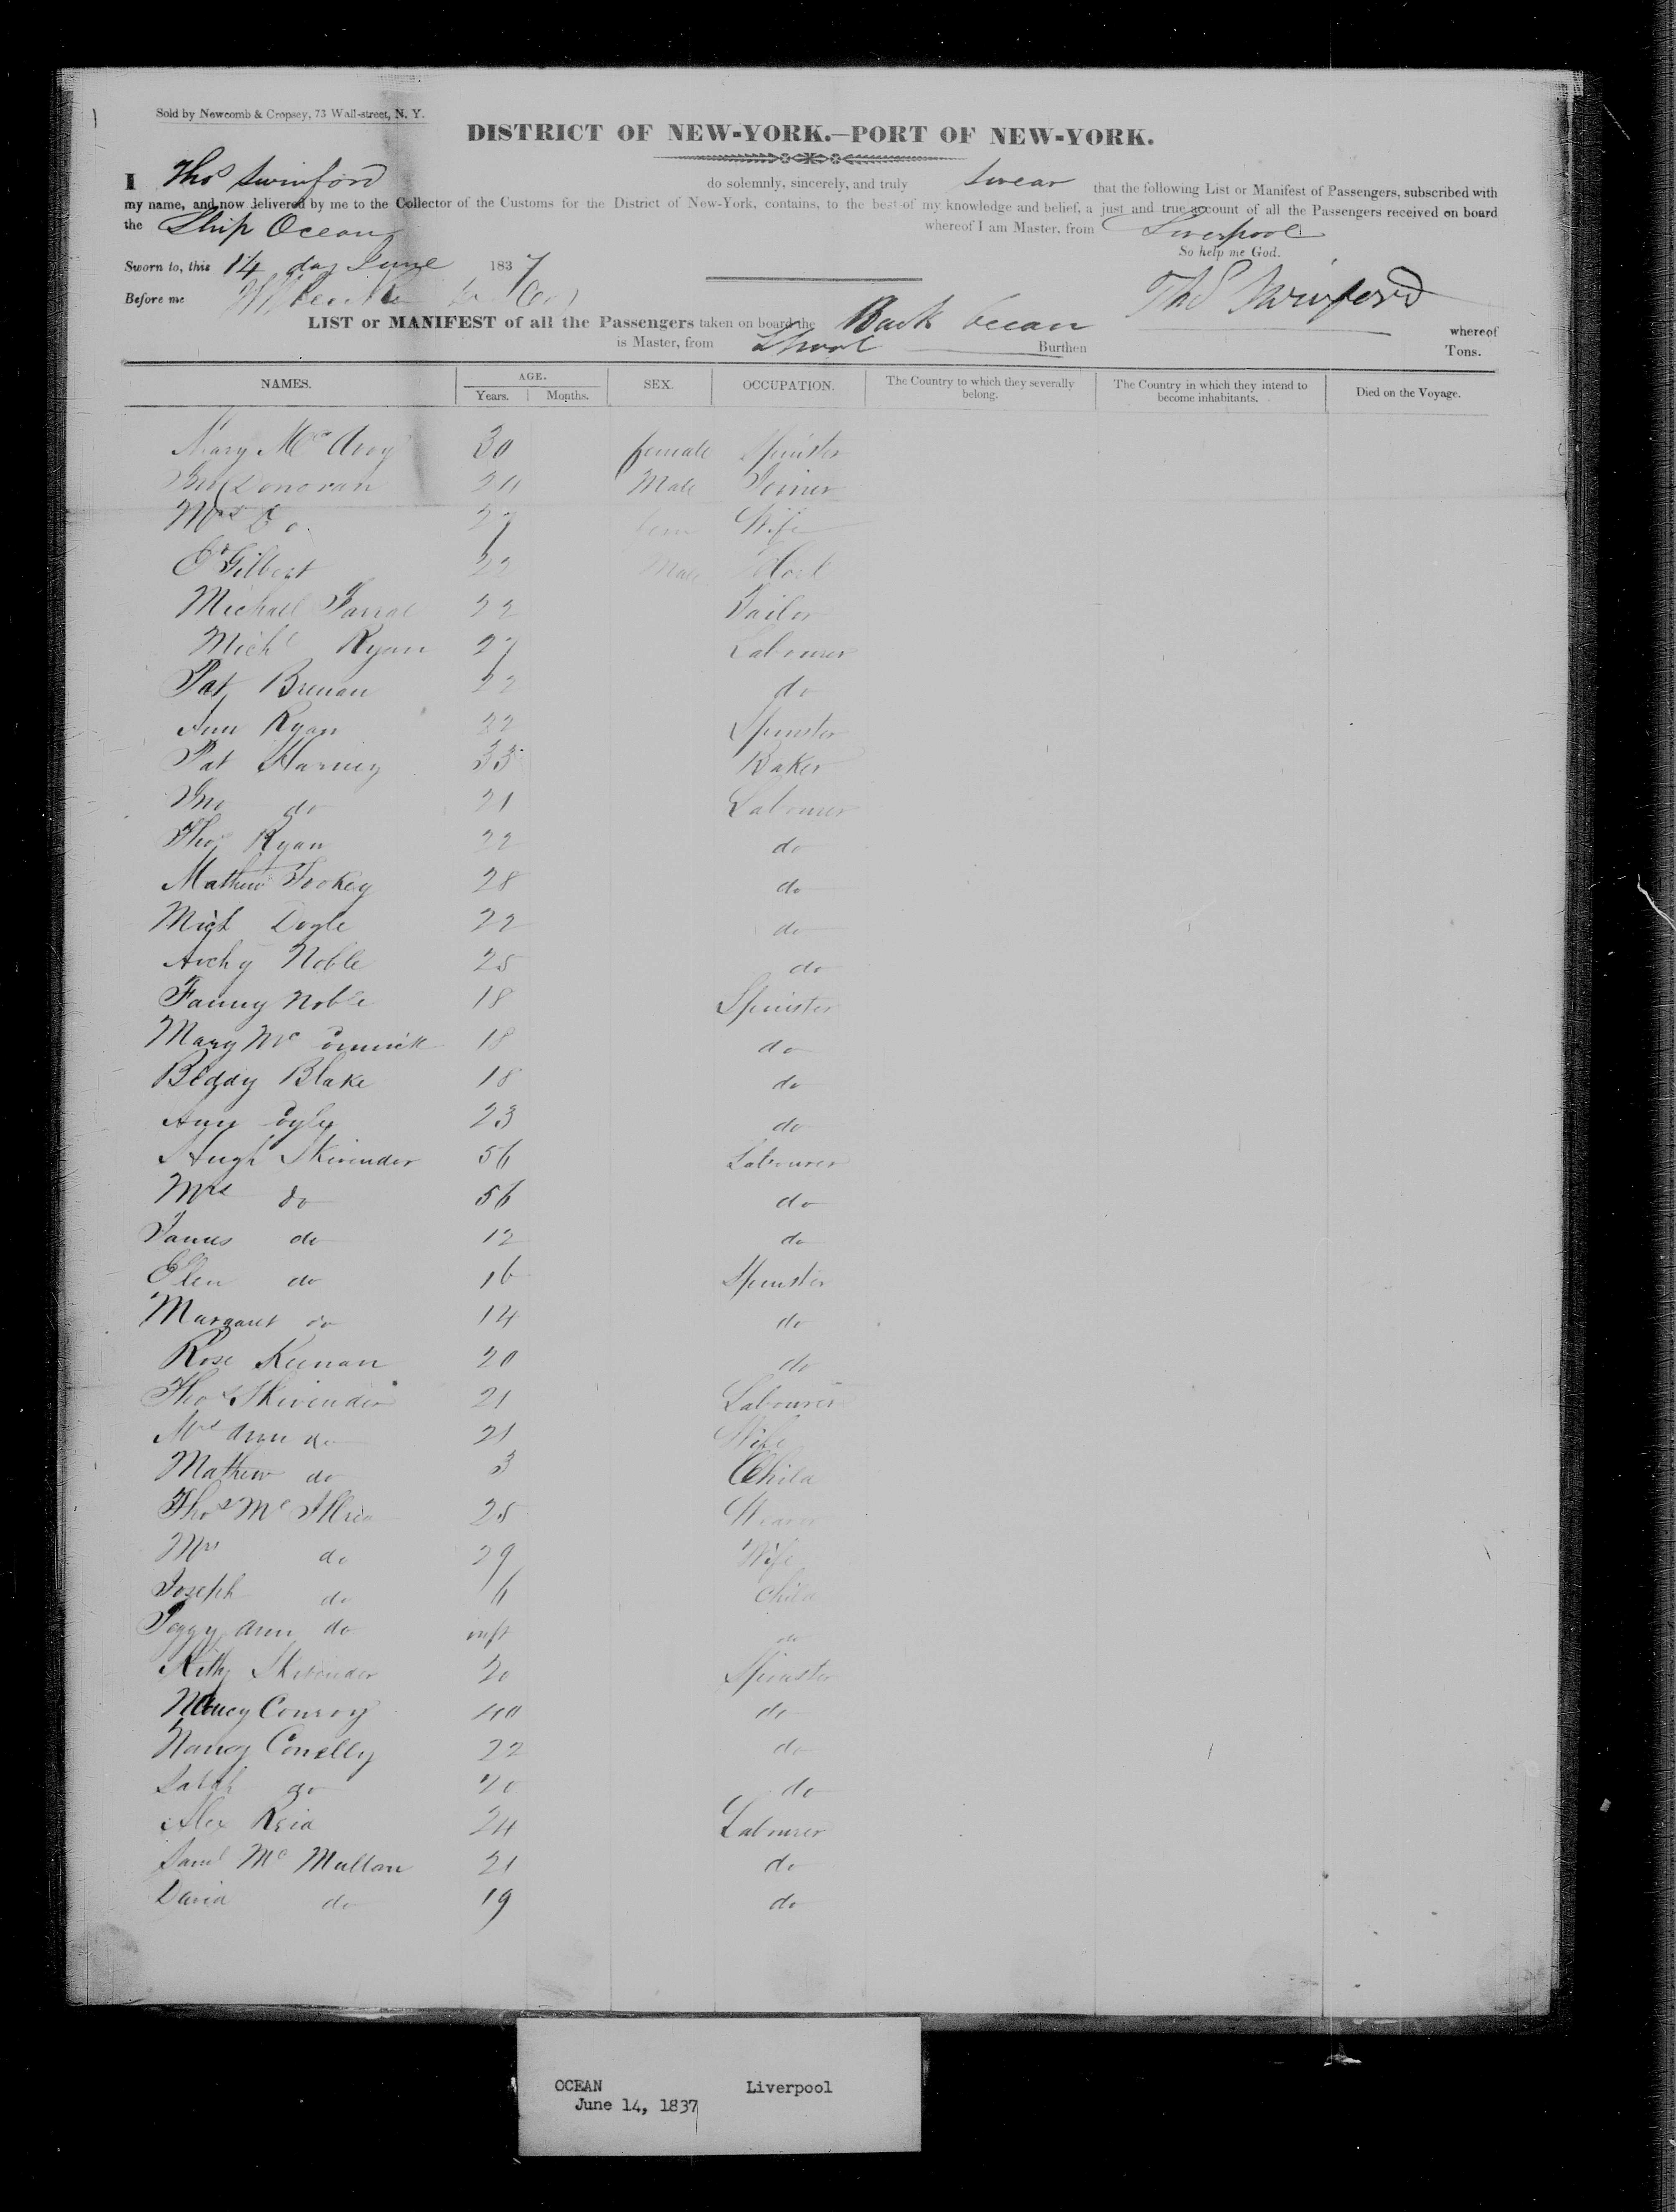 Sold by Newcomb & Cropsey, 73 Wall-street, N. Y.
DISTRICT OF NEW-YORK.—PORT OF NEW-YORK.
I Thos Swinford do solemnly, sincerely, and truly swear that the following List or Manifest of Passengers, subscribed with
my name, and now delivered by me to the Collector of the Customs for the District of New-York, contains, to the best of my knowledge and belief, a just and true account of all the Passengers received on board
the Ship Ocean whereof I am Master, from Liverpool
So help me God.
Sworn to, this 14 day June 1837
Before me Thos Swinford
LIST or MANIFEST of all the Passengers taken on board the Bark Ocean whereof
is Master, from Lpool Burthen Tons.
NAMES. AGE. Years. Months. SEX. OCCUPATION. The Country to which they severally belong. The Country in which they intend to become inhabitants. Died on the Voyage.
Mary McAvoy 30 female Spinster
Donovan Male Joiner
Mrs Do 27 fem Wife
Gilbert 22 Male
Michael Farral 22 Tailor
Michl Ryan 27 Labourer
Pat Brenan 22 do
Ann Ryan 22 Spinster
Pat Harney 33 Baker
Jno do 21 Labourer
Thos Ryan 22 do
Mathew Tookey 28 do
Mich Doyle 22 do
Archy Noble 25 do
Fanny Noble 18 Spinster
Mary Mc ormick 18 do
Biddy Blake 18 do
Ann 23 do
Hugh Skivender 56 Labourer
Mrs do 56 do
James do 12 do
Ellen do 16 Spinster
Margaret do 14 do
Rose Keenan 20 do
Thos Skivender 21 Labourer
Mrs Ann do 21 Wife
Mathew do 3 Child
Thos Mc 25 Weaver
Mrs do 29 Wife
Joseph do 6 child
Peggy Ann do inft do
Kitty Skivender 20 Spinster
Nancy Conroy 40 do
Nancy Conelly 22 do
Sarah do 20 do
Alex Reid 24 Labourer
Saml McMullan 21 do
David do 19 do
OCEAN Liverpool
June 14, 1837